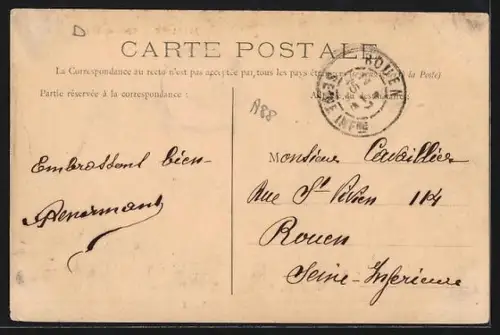 D
CARTE POSTALE
La Correspondance au recto n'est pas acceptée par tous les pays étrangers (se renseigner à la Poste)
Partie réservée à la correspondance :
A88
ROUEN
SEINE INFRE
Monsieur Cavaillier
Embrassent bien
Rue St Vivien 114
Rouen
Seine-Inférieure